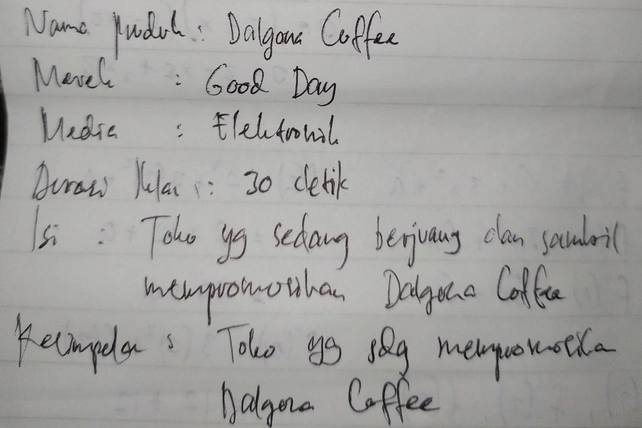 Nama produk : Dalgona Coffee
Merek : Good Day
Media : Elektronik
Durasi Iklan : 30 detik
Isi : Toko yg sedang berjuang dan sambil
mempromosikan Dalgona Coffee
Kesimpulan : Toko yg sdg mempromosika
Dalgona Coffee